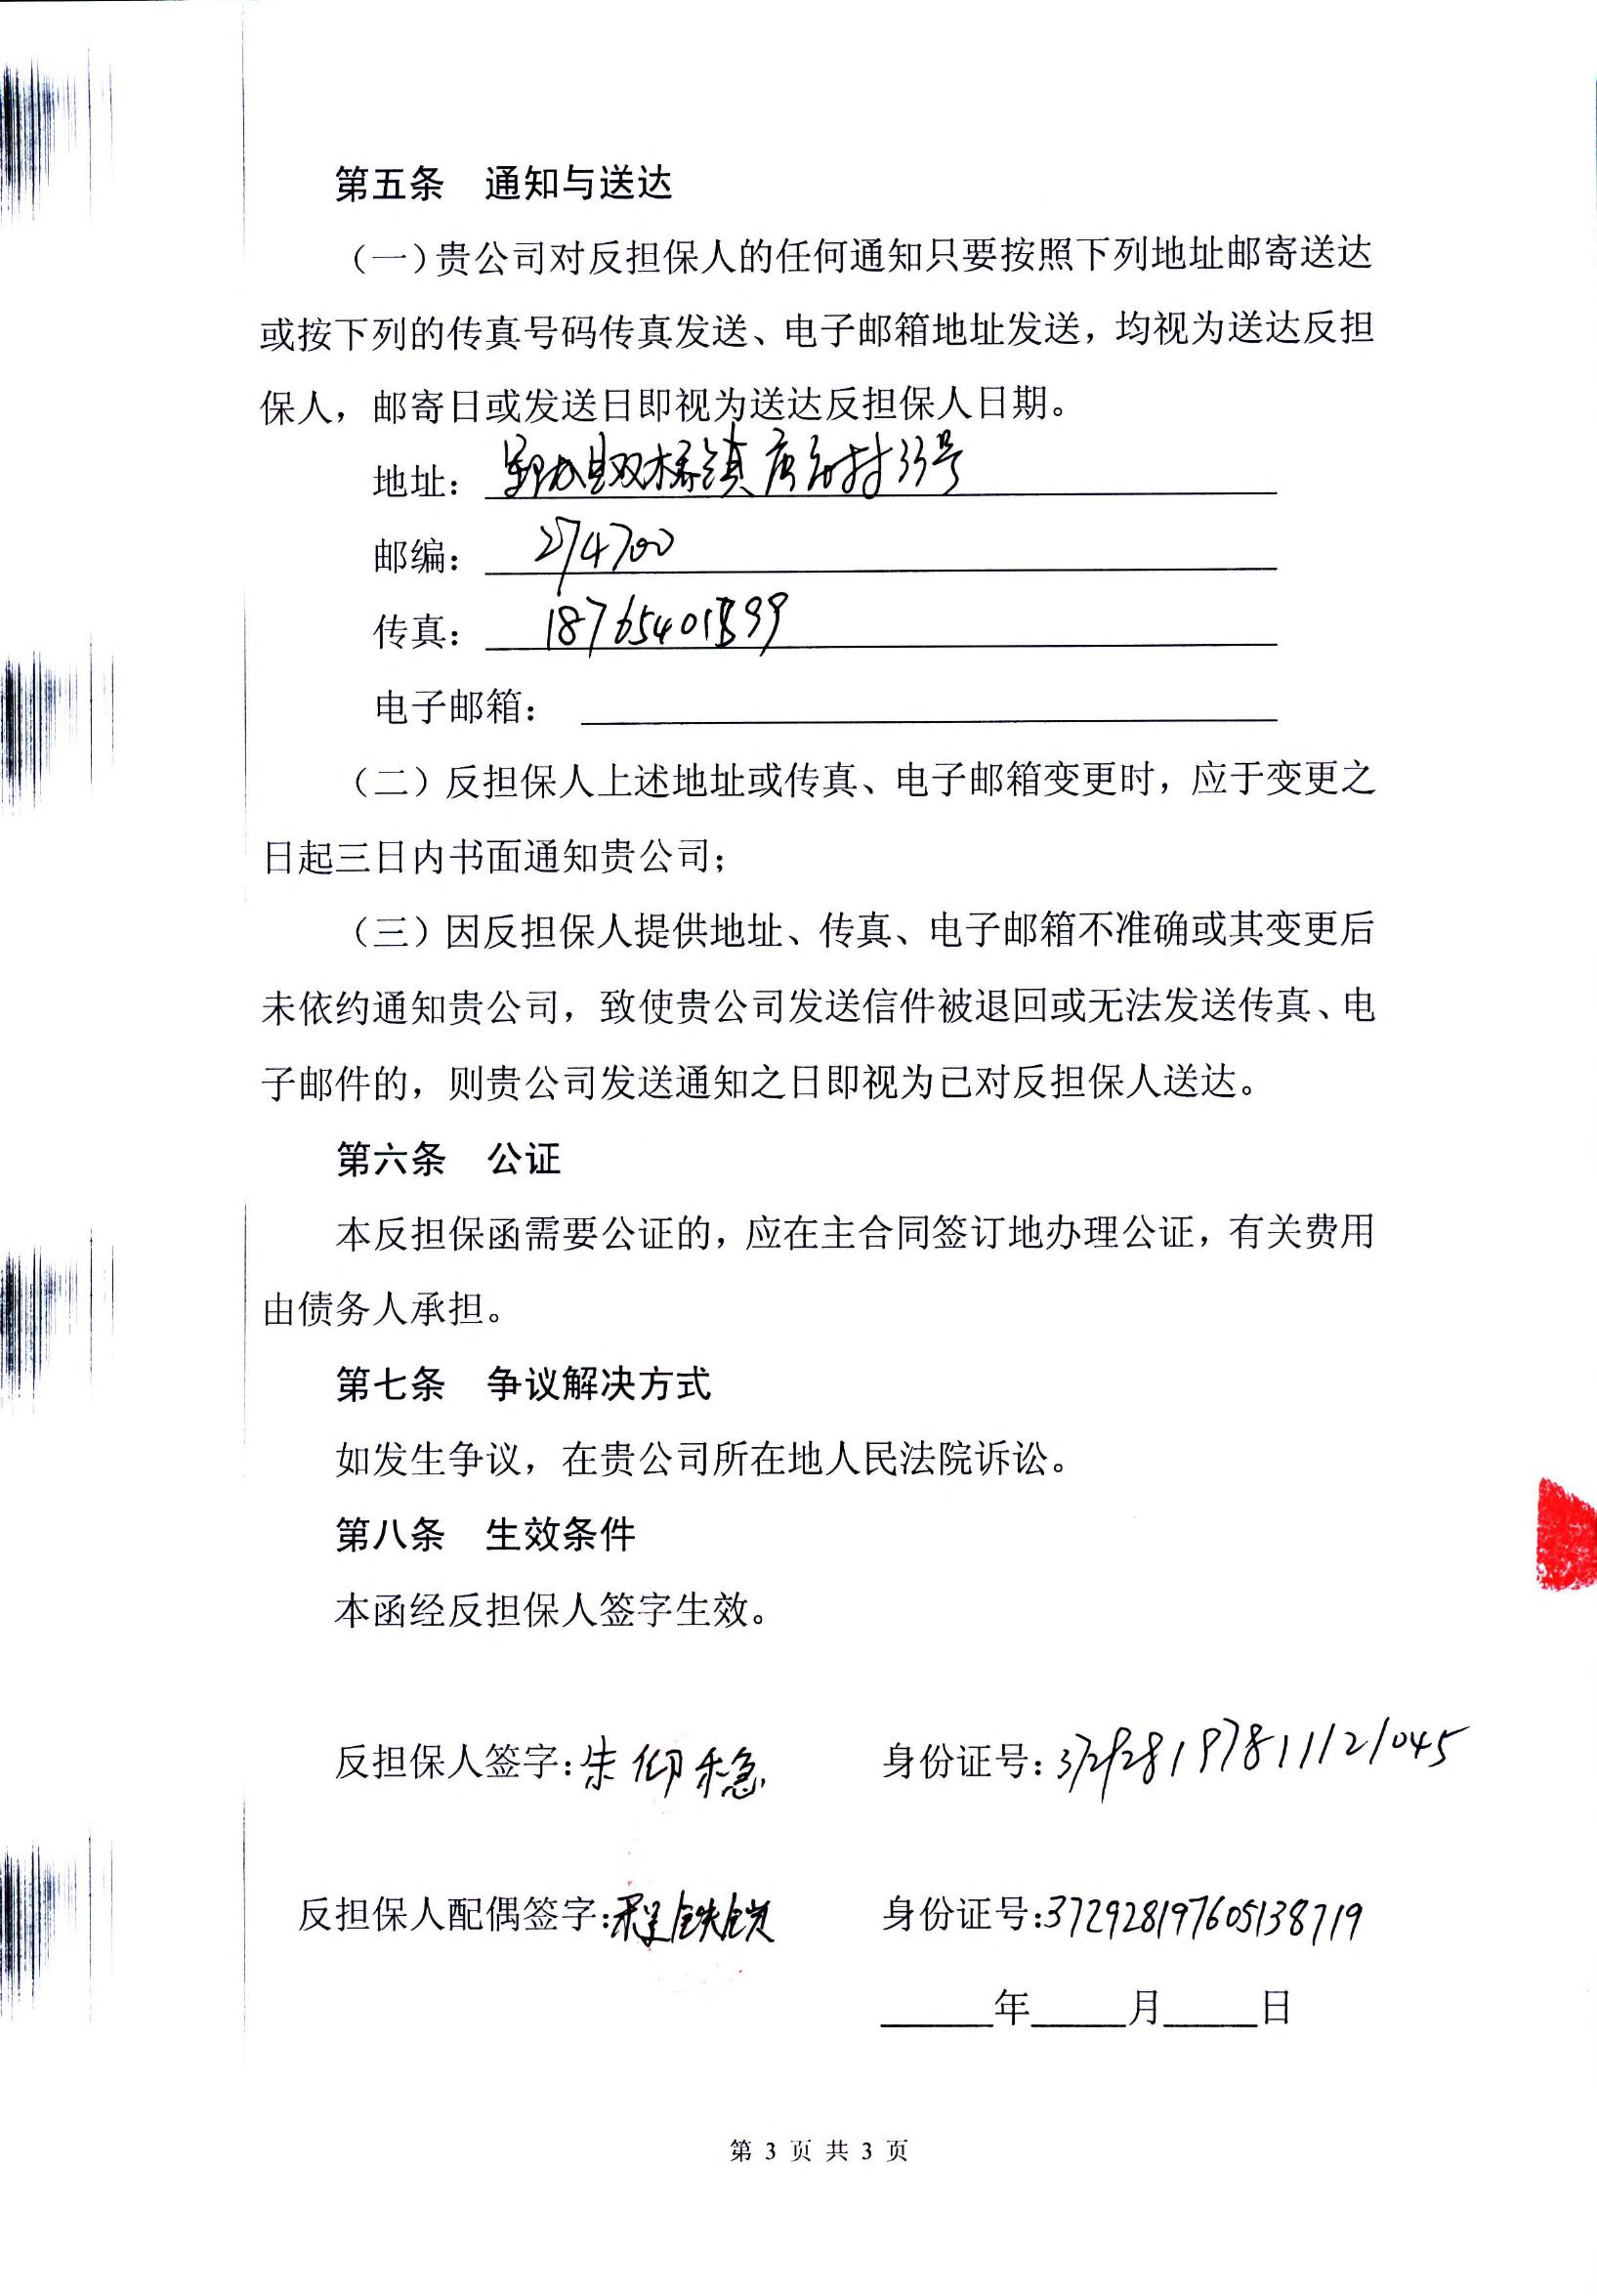 第五条 通知与送达
（一）贵公司对反担保人的任何通知只要按照下列地址邮寄送达
或按下列的传真号码传真发送、电子邮箱地址发送，均视为送达反担
保人，邮寄日或发送日即视为送达反担保人日期。
地址：县双桥镇村33号
邮编：274700
传真：
电子邮箱：
（二）反担保人上述地址或传真、电子邮箱变更时，应于变更之
日起三日内书面通知贵公司；
（三）因反担保人提供地址、传真、电子邮箱不准确或其变更后
未依约通知贵公司，致使贵公司发送信件被退回或无法发送传真、电
子邮件的，则贵公司发送通知之日即视为已对反担保人送达。
第六条 公证
本反担保函需要公证的，应在主合同签订地办理公证，有关费用
由债务人承担。
第七条 争议解决方式
如发生争议，在贵公司所在地人民法院诉讼。
第八条 生效条件
本函经反担保人签字生效。
反担保人签字：朱仰稳 身份证号：
反担保人配偶签字：程铁锁 身份证号：372928197605138719
年 月 日
第 3 页 共 3 页